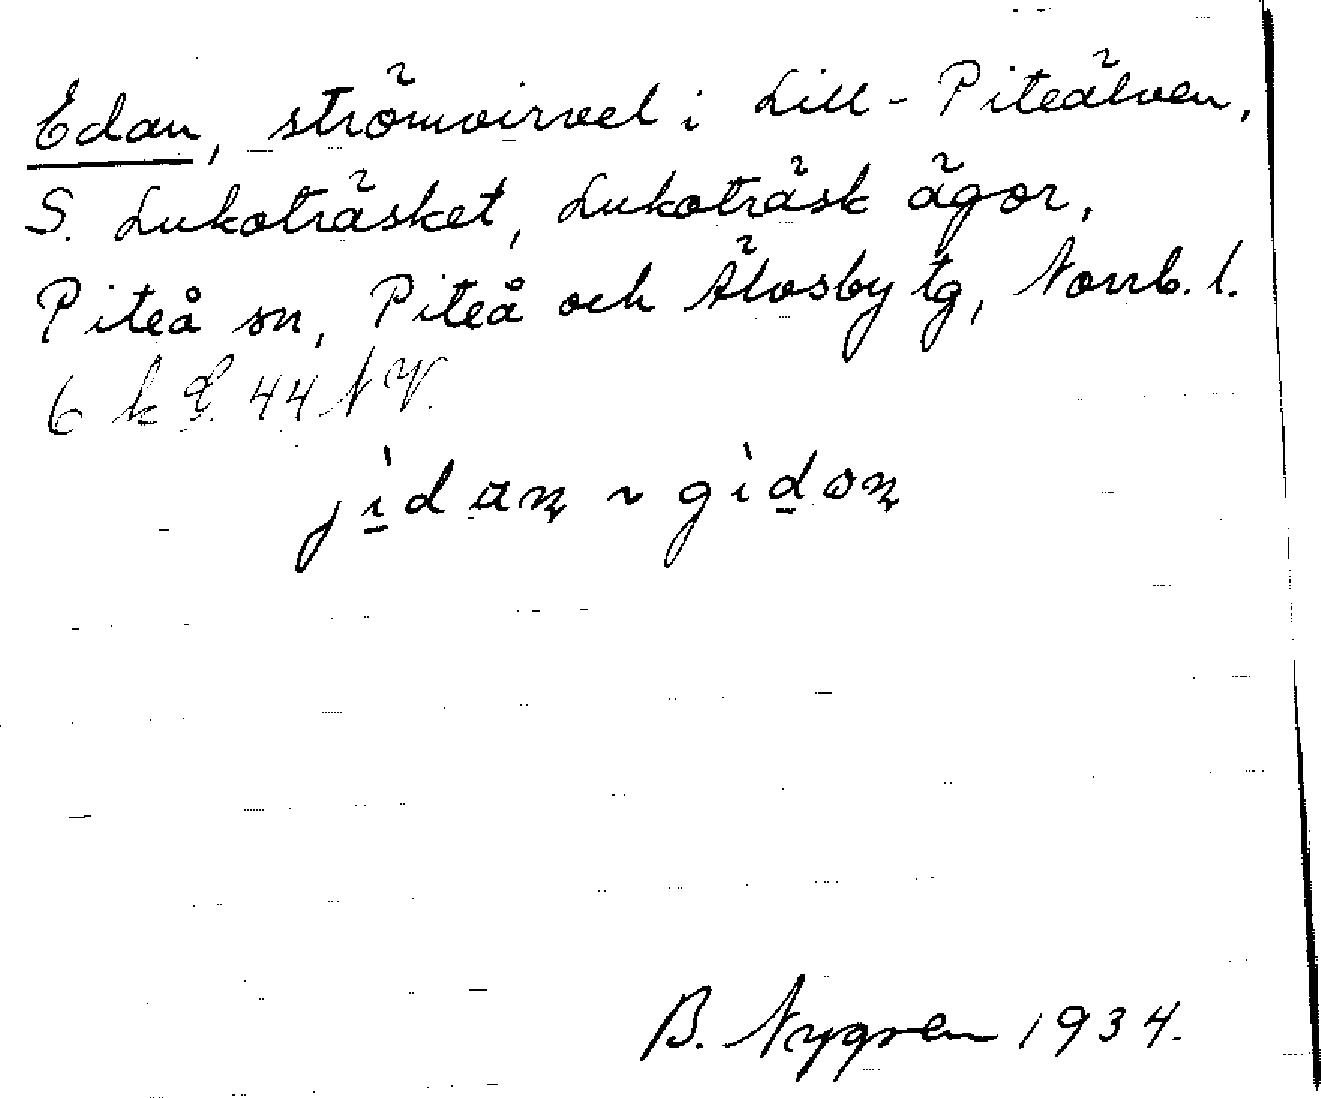 Edan, strömvirvel i Lill-Piteälven,
S. Lukoträsket, Lukoträsk ägor,
Piteå sn, Piteå och Älvsby tg, Norrb. l.
6 k 44 NV.
jìdan ~ gìdon
B. Nygren 1934.